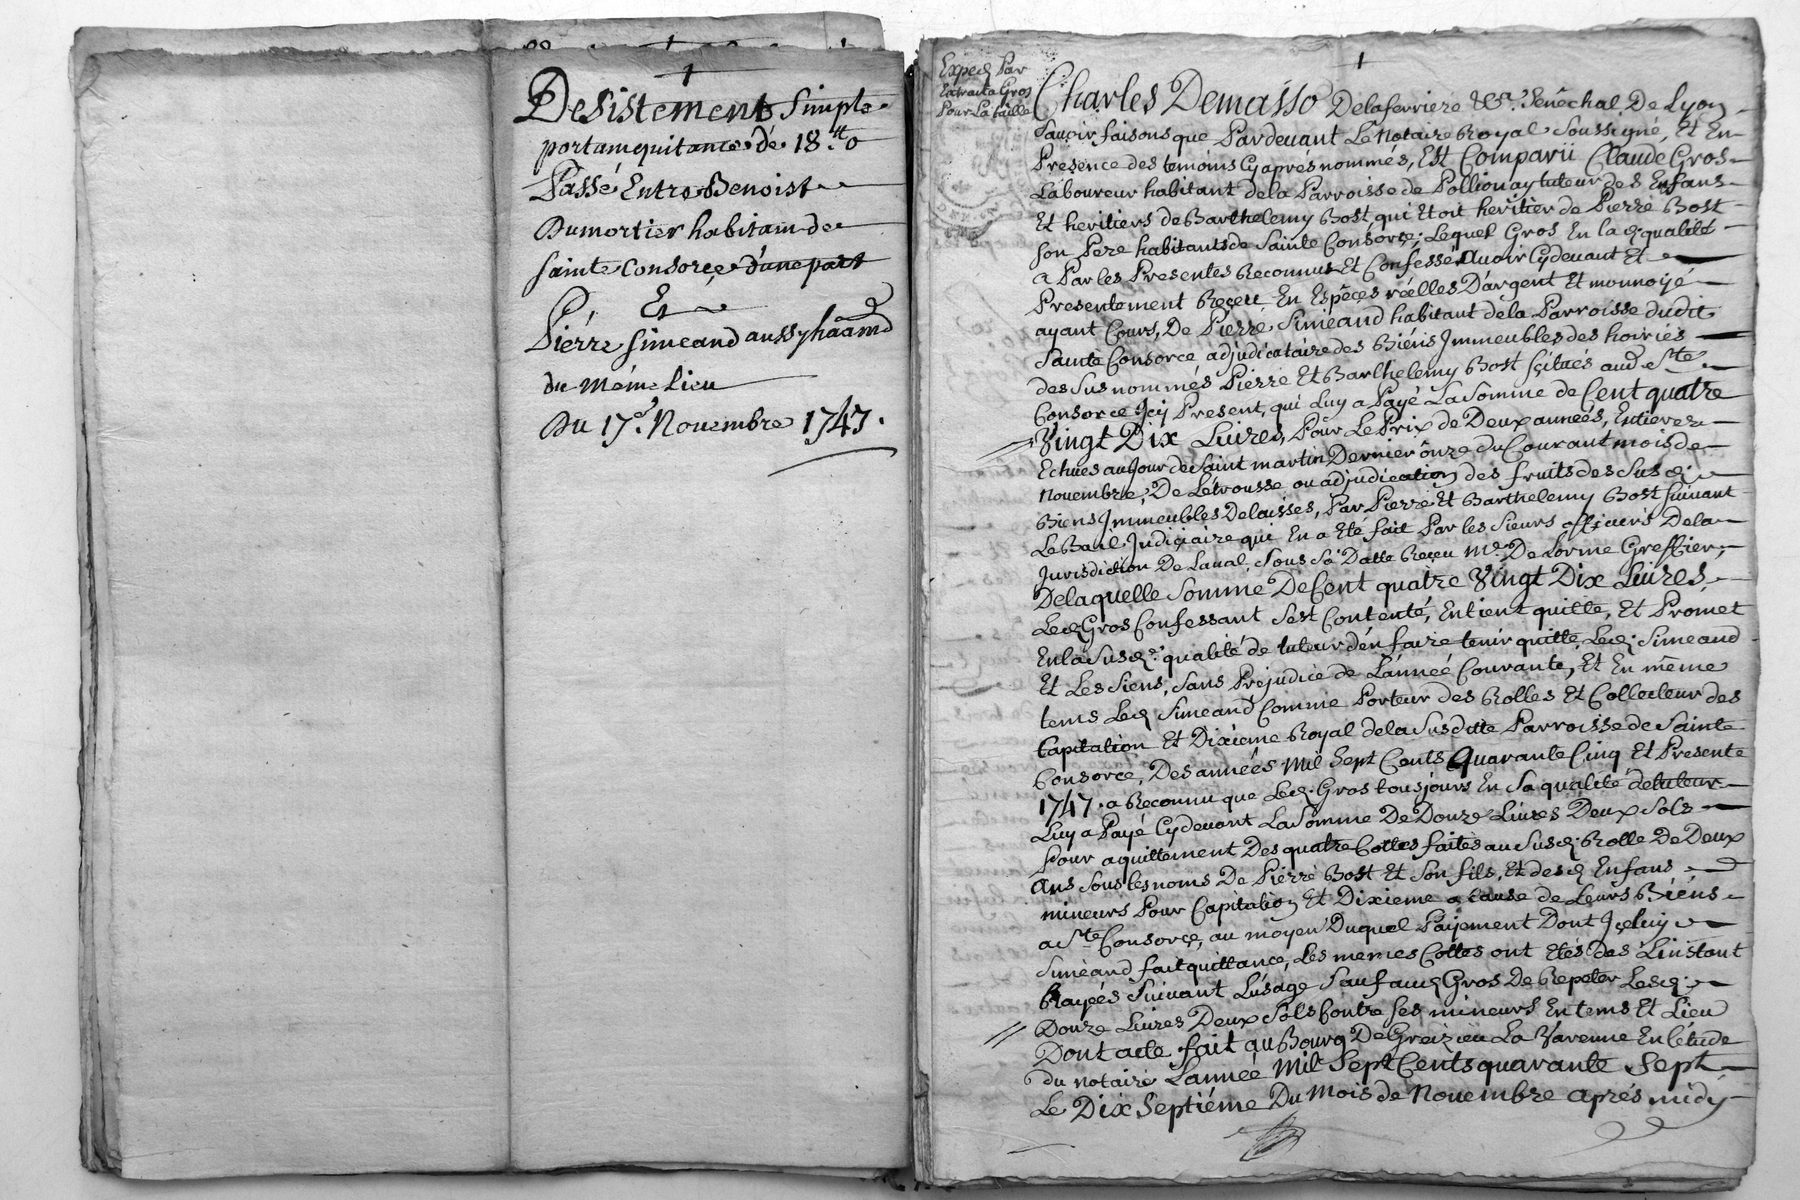 1
Desistement simple
portant quitance de 18.tt 0
Passé Entre Benoist
Dumortier habitant de
sainte Consorce d'une part
Et
Pierre simeand aussy habitand
du même Lieu
Du 17.e Novembre 1747.
1
Exped. Par
Extrait a Gros
Pour La taille
Charles Demasso Delaferriere &a. Senéchal De Lyon
savoir faisons que Pardevant Le Notaire Royal Soussigné, Et En
Presence des témoins Cyaprés nommés, Est Comparü Claude Gros
Laboureur habitant dela Parroisse de Pollionay tuteur des Enfans
Et heritiers de Barthelemy Bost, qui Etoit heritier de Pierre Bost
son Pere habitants de Sainte Consorce; Lequel Gros En lad. qualité
a Par les Presentes Reconnu Et Confessé Avoir Cydevant Et
Presentement Reçeu En Espêces réelles D'argent Et monnoyé
ayant Cours, De Pierre Simeand habitant dela Parroisse dudit
Sainte Consorce adjudicataire des Biéns Immeubles des hoiries
des sus nommés Pierre Et Barthelemy Bost scitués aud. Ste
Consorce Icy Present, qui Luy a Payé La somme de Cent quatre
Vingt Dix Livres, Pour Le Prix de Deux années, Entieres
Echues au Jour de Saint martin Dernier ônze du Courant mois de
Novembre, De L'étrousse ou adjudication des fruits des Susd.
Biens Immeubles Delaissés, Par Pierre Et Barthelemy Bost suivant
Le Bail Judiciaire qui En a Eté fait Par les Sieurs officiers Dela
Jurisdiction De Laval, Sous Sa Datte Reçeu Me. De Lorme Greffier,
Delaquelle Somme De Cent quatre Vingt Dix Livres
Led. Gros Confessant S'est Contenté, En tient quitte, Et Promet
En la Susd.e qualité de tuteur d'en faire tenir quitte Led. Simeand
Et Les Siens, Sans Prejudice de L'année Courante, Et En même
tems Led. Simeand Comme Porteur des Rolles Et Collecteur des
Capitation Et Dixiéme Royal dela Susditte Parroisse de Sainte
Consorce, Des années Mil Sept Cents Quarante Cinq Et Presente
1747. a Reconnu que Led. Gros tousjours En Sa qualité de tuteur
Luy a Payé Cydevant La Somme De Douze Livres Deux Sols
Pour aquittement Des quatre Cottes faites au Susd. Rolle De Deux
Ans Sous les noms De Pierre Bost Et Son fils, Et desd. Enfans
mineurs Pour Capitation Et Dixieme a Cause de Leurs Biéns
a Ste Consorce, au moyen Duquel Payement Dont Içeluy
Simeand fait quittance, Les memes Cottes ont Etés dés L'instant
Rayées Suivant L'usage Sauf aud. Gros De Repeter Lesd.
Douze Livres Deux Sols Contre Ses mineurs En tems Et Lieu
Dont acte fait au Bourg De Greizieu La Varenne En l'étude
du notaire L'année Mil Sept Cents quarante Sept
Le Dix Septiéme Du Mois de Novembre aprés midy